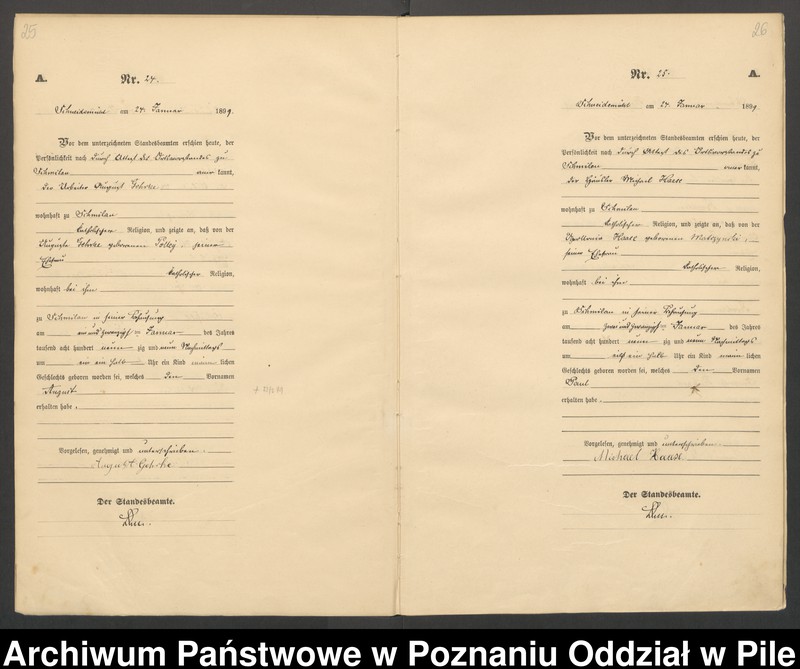 25
A.
Nr. 24.
Schneidemühl am 24. Januar 1899.
Vor dem unterzeichneten Standesbeamten erschien heute, der
Persönlichkeit nach durch Attest des Ortsvorstandes zu
Schmilau kannt,
der Arbeiter August Gehrke
wohnhaft zu Schmilau
katholischer Religion, und zeigte an, daß von der
Auguste Gehrke geborenen seiner
Ehefrau
katholischer Religion,
wohnhaft bei ihm
zu Schmilau in seiner Behausung
am ein und zwanzigsten Januar des Jahres
tausend acht hundert neun zig und neun Nachmittags
um ein halb Uhr ein Kind männlichen
Geschlechts geboren worden sei, welches den Vornamen
August
erhalten habe.
Vorgelesen, genehmigt und unterschrieben.
August Gehrke
Der Standesbeamte.
26
Nr. 25.
A.
Schneidemühl am 24. Januar 1899.
Vor dem unterzeichneten Standesbeamten erschien heute, der
Persönlichkeit nach durch Attest des Ortsvorstandes zu
Schmilau kannt,
der Häusler Michael Haase
wohnhaft zu Schmilau
katholischer Religion, und zeigte an, daß von der
Apollonia Haase geborenen
seiner Ehefrau
katholischer Religion,
wohnhaft bei ihm
zu Schmilau in seiner Behausung
am zwei und zwanzigsten Januar des Jahres
tausend acht hundert neun zig und neun Nachmittags
um ein halb Uhr ein Kind männlichen
Geschlechts geboren worden sei, welches den Vornamen
Paul
erhalten habe.
Vorgelesen, genehmigt und unterschrieben.
Michael Haase
Der Standesbeamte.
Archiwum Państwowe w Poznaniu Oddział w Pile